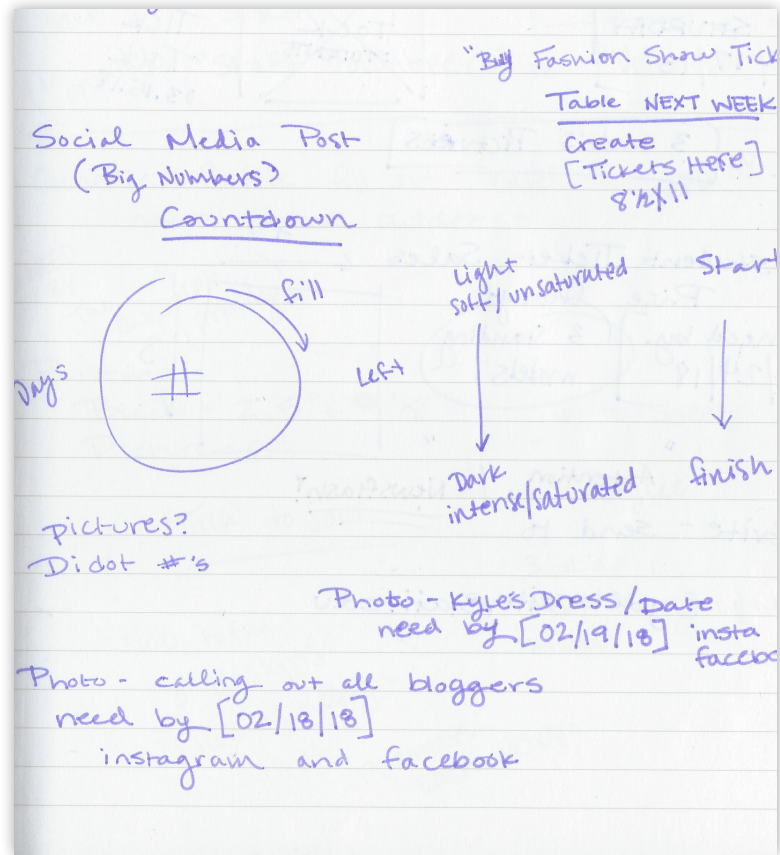 "Buy Fashion Show Tick
Table NEXT WEEK
Create
[Tickets Here]
8½X11
Social Media Post
(Big Numbers)
Countdown
fill
#
Days
Left
Light
soft/unsaturated
Dark
intense/saturated
Start
finish
pictures?
Didot #'s
Photo - Kyle's Dress/Date
need by [02/19/18] insta
facebo
Photo - calling out all bloggers
need by [02/18/18]
instagram and facebook